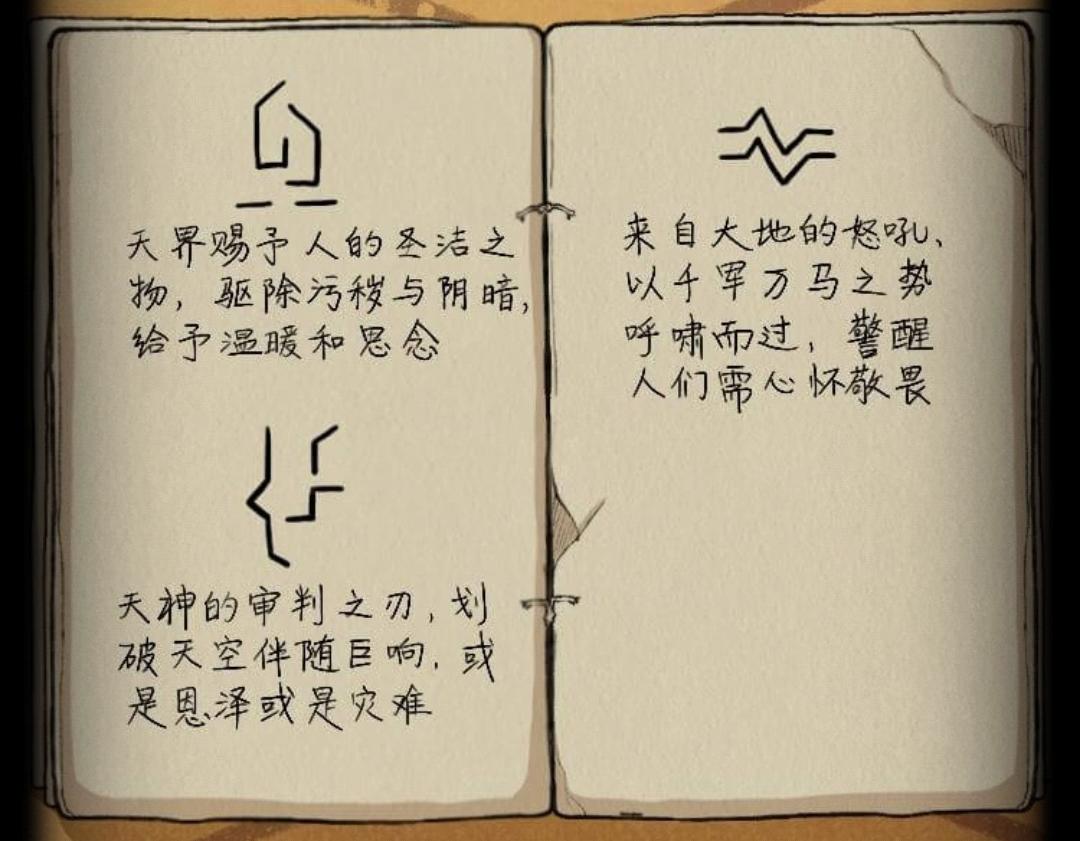 天界赐予人的圣洁之
物，驱除污秽与阴暗，
给予温暖和思念
天神的审判之刃，划
破天空伴随巨响，或
是恩泽或是灾难
来自大地的怒吼、
以千军万马之势
呼啸而过，警醒
人们需心怀敬畏